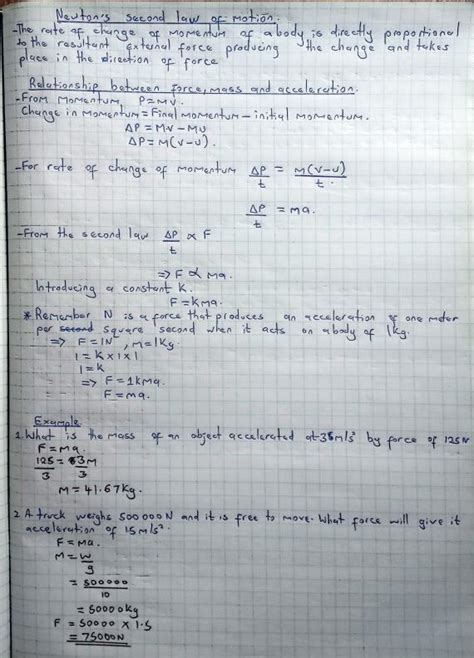 Newton's second law of motion.
-The rate of change of momentum of a body is directly proportional
to the resultant external force producing the change and takes
place in the direction of force
Relationship between force, mass and acceleration.
-From momentum, P=mv.
Change in momentum = Final momentum - initial momentum.
ΔP = Mv - Mu
ΔP = M(v-u).
-For rate of change of momentum ΔP/t = M(v-u)/t.
ΔP/t = ma.
-From the second law ΔP/t ∝ F
=> F ∝ Ma.
Introducing a constant K.
F = KMa.
* Remember N is a force that produces an acceleration of one meter
per second square second when it acts on a body of 1kg.
=> F = 1N, M=1Kg.
1 = K x 1 x 1
1 = K
=> F = 1KMa.
F = ma.
Example
1. What is the mass of an object accelerated at 3m/s² by force of 125N
F = Ma
125/3 = 3M/3
M = 41.67kg.
2. A truck weighs 500000N and it is free to move. What force will give it
acceleration of 15m/s².
F = Ma.
M = W/g
= 500000/10
= 50000kg
F = 50000 x 1.5
= 75000N